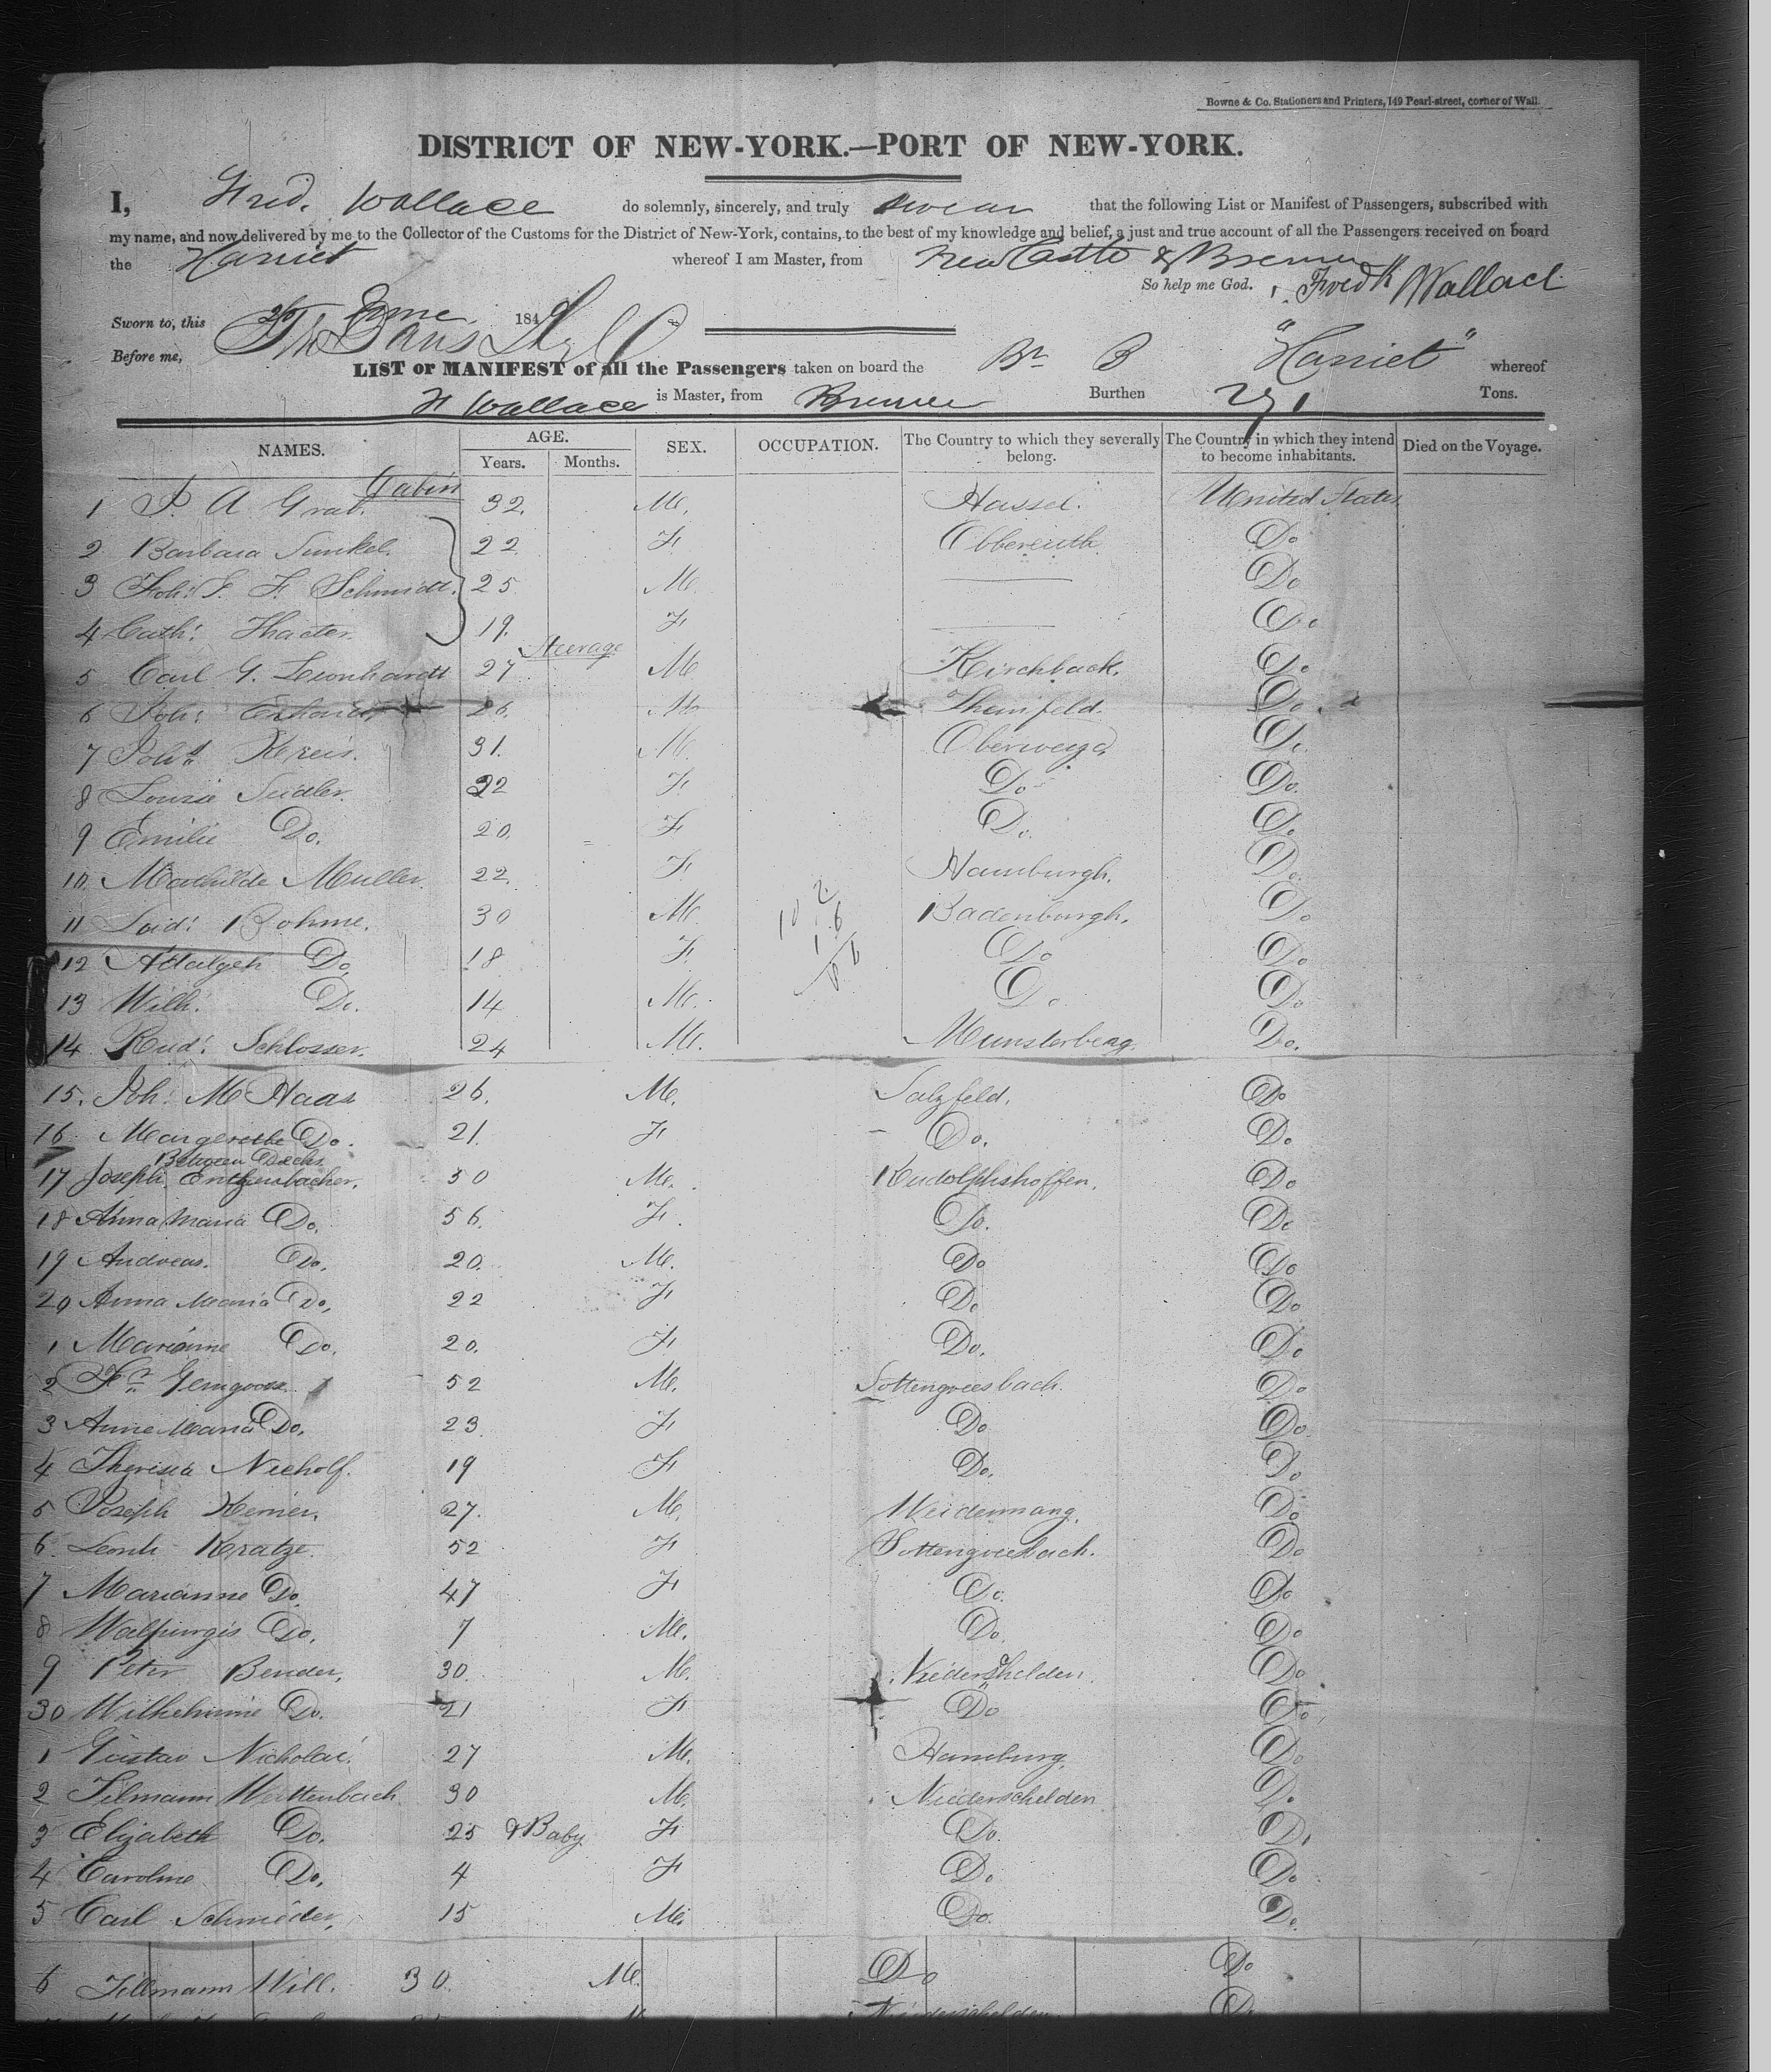 Bowne & Co. Stationers and Printers, 149 Pearl-street, corner of Wall.
DISTRICT OF NEW-YORK.—PORT OF NEW-YORK.
I, Fred. Wallace do solemnly, sincerely, and truly swear that the following List or Manifest of Passengers, subscribed with
my name, and now delivered by me to the Collector of the Customs for the District of New-York, contains, to the best of my knowledge and belief, a just and true account of all the Passengers received on board
the Harriet whereof I am Master, from New Castle & Bremen
So help me God. Fredk Wallace
Sworn to, this June 184
Before me,
LIST or MANIFEST of all the Passengers taken on board the Br B "Harriet" whereof
F Wallace is Master, from Bremen Burthen 291 Tons.
NAMES. AGE. Years. Months. SEX. OCCUPATION. The Country to which they severally belong. The Country in which they intend to become inhabitants. Died on the Voyage.
Cabin
1 P. A Grab. 32. M. Hassel. United States
2 Barbara Sunkel. 22 F Do
3 Joh: F. Schmidt. 25 M Do
4 Cath: 19. F Do
Steerage
5 Carl G. Leonhardt 27 M Kirchback. Do
6 Joh: 26. M Do
7 Joh. Kreis. 31. M Do
8 Louise Seidler. 22 F. Do Do.
9 Emilie Do. 20. F Do. Do
10. Mathilde Muller. 22. F Hamburgh. Do.
11 Bohme. 30 M. Badenburgh. Do
12 Do 18 F. Do Do
13 Wilh: Do. 14 M. Do. Do
14 Rud: Schlosser. 24 M. Munsterberg. Do.
15. Joh: M Haas 26. M. Salzfeld. Do
16 Margerethe Do. 21. F Do. Do
Between Decks
17 Joseph 50 M. Rudolphshoffen. Do
18 Anna Maria Do. 56. F. Do. Do
19 Andreas. Do. 20. M. Do Do
20 Anna Maria Do. 22 F Do Do
1 Marianne Do. 20. F Do. Do
2 52 M. Sottengreesbach. Do
3 Anne Maria Do. 23. F Do Do
4 Theresia 19 F Do. Do
5 Joseph 27. M. Do
6. Leonh Kratze. 52 F Sottengreesbach. Do
7 Marianne Do. 47 F Do. Do
8 Walpurgis Do. 7 M. Do. Do
9 Peter Bender, 30. M. Niederschelden. Do
30 Wilhelmine Do. 21 F Do Do
1 Gustav Nicholai. 27 M. Hamburg. Do
2 Tilmann Wattenbach 30 M. Niederschelden Do
3 Elizabeth Do. 25 & Baby F Do. Do
4 Caroline Do. 4 F Do Do
5 Carl Schmeder, 15 M. Do. Do
6 Tillmann Will. 30. M. Do Do
Niederschelden Do